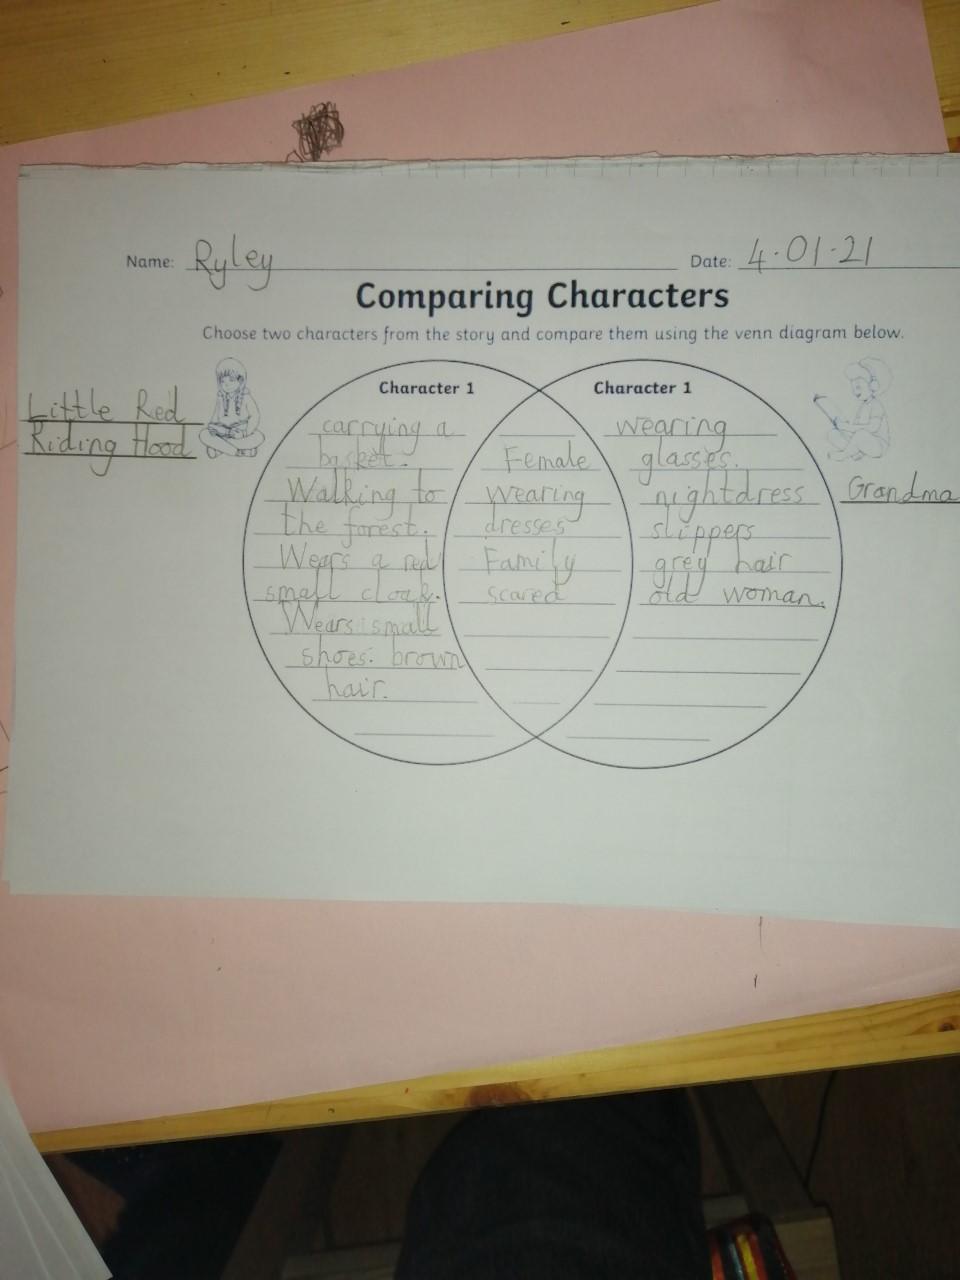 Name: Ryley
Date: 4.01.21
Comparing Characters
Choose two characters from the story and compare them using the venn diagram below.
Little Red
Riding Hood
Character 1
carrying a
basket.
Walking to
the forest.
Wears a red
small cloak.
Wears small
shoes. brown
hair.
Female
Wearing
dresses
Family
scared
Character 1
wearing
glasses.
nightdress
slippers
grey hair
old woman.
Grandma